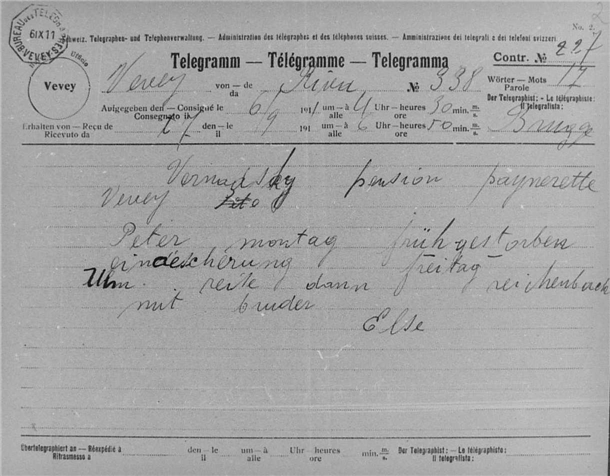 6 IX 11
VEVEY
No. 2.
Schweiz. Telegraphen- und Telephonverwaltung. – Administration des télégraphes et des téléphones suisses. – Amministrazione dei telegrafi e dei telefoni svizzeri.
Telegramm – Télégramme – Telegramma
Contr. No 227
Wörter – Mots
Parole 17
Vevey
Vevey von – de da № 338
Der Telegraphist: – Le télégraphiste:
Il telegrafista:
Aufgegeben den – Consigné le
Consegnato il 6/9 1911 um – à alle 4 Uhr – heures ore 30 min. m. s.
Erhalten von – Reçu de
Ricevuto da den – le il 6/9 191 um – à alle 6 Uhr – heures ore 50 min. m. s.
Vernadsky pension paynerette
Vevey
Peter montag früh gestorben
eindescherung freitag
Ulm. reite dann reichenbach
mit bruder
Else
Übertelegraphiert an – Réexpédié à
Ritrasmesso a
den – le il um – à alle Uhr – heures ore min. m. s.
Der Telegraphist: – Le télégraphiste:
Il telegrafista: